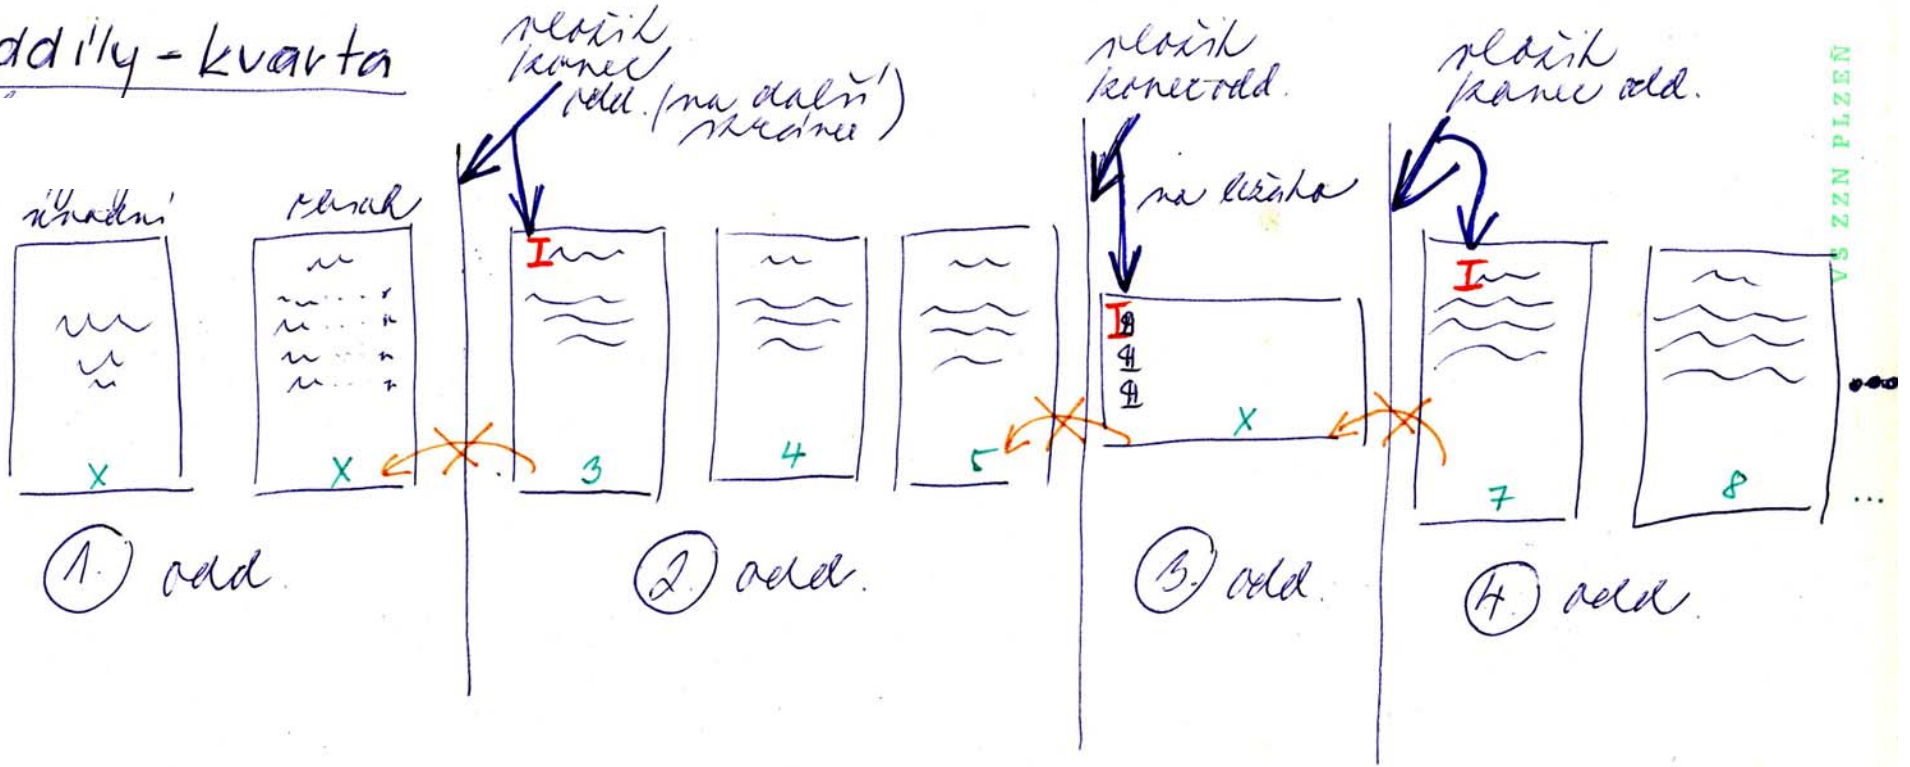 oddíly - kvarta
vložit
konec
odd. (na další
stránce)
vložit
konec odd.
vložit
konec odd.
na ležato
úvodní
obsah
I
I
I
X
X
3
4
5
X
7
8
...
1. odd.
2. odd.
3. odd.
4. odd.
VŠ ZZN PLZEŇ